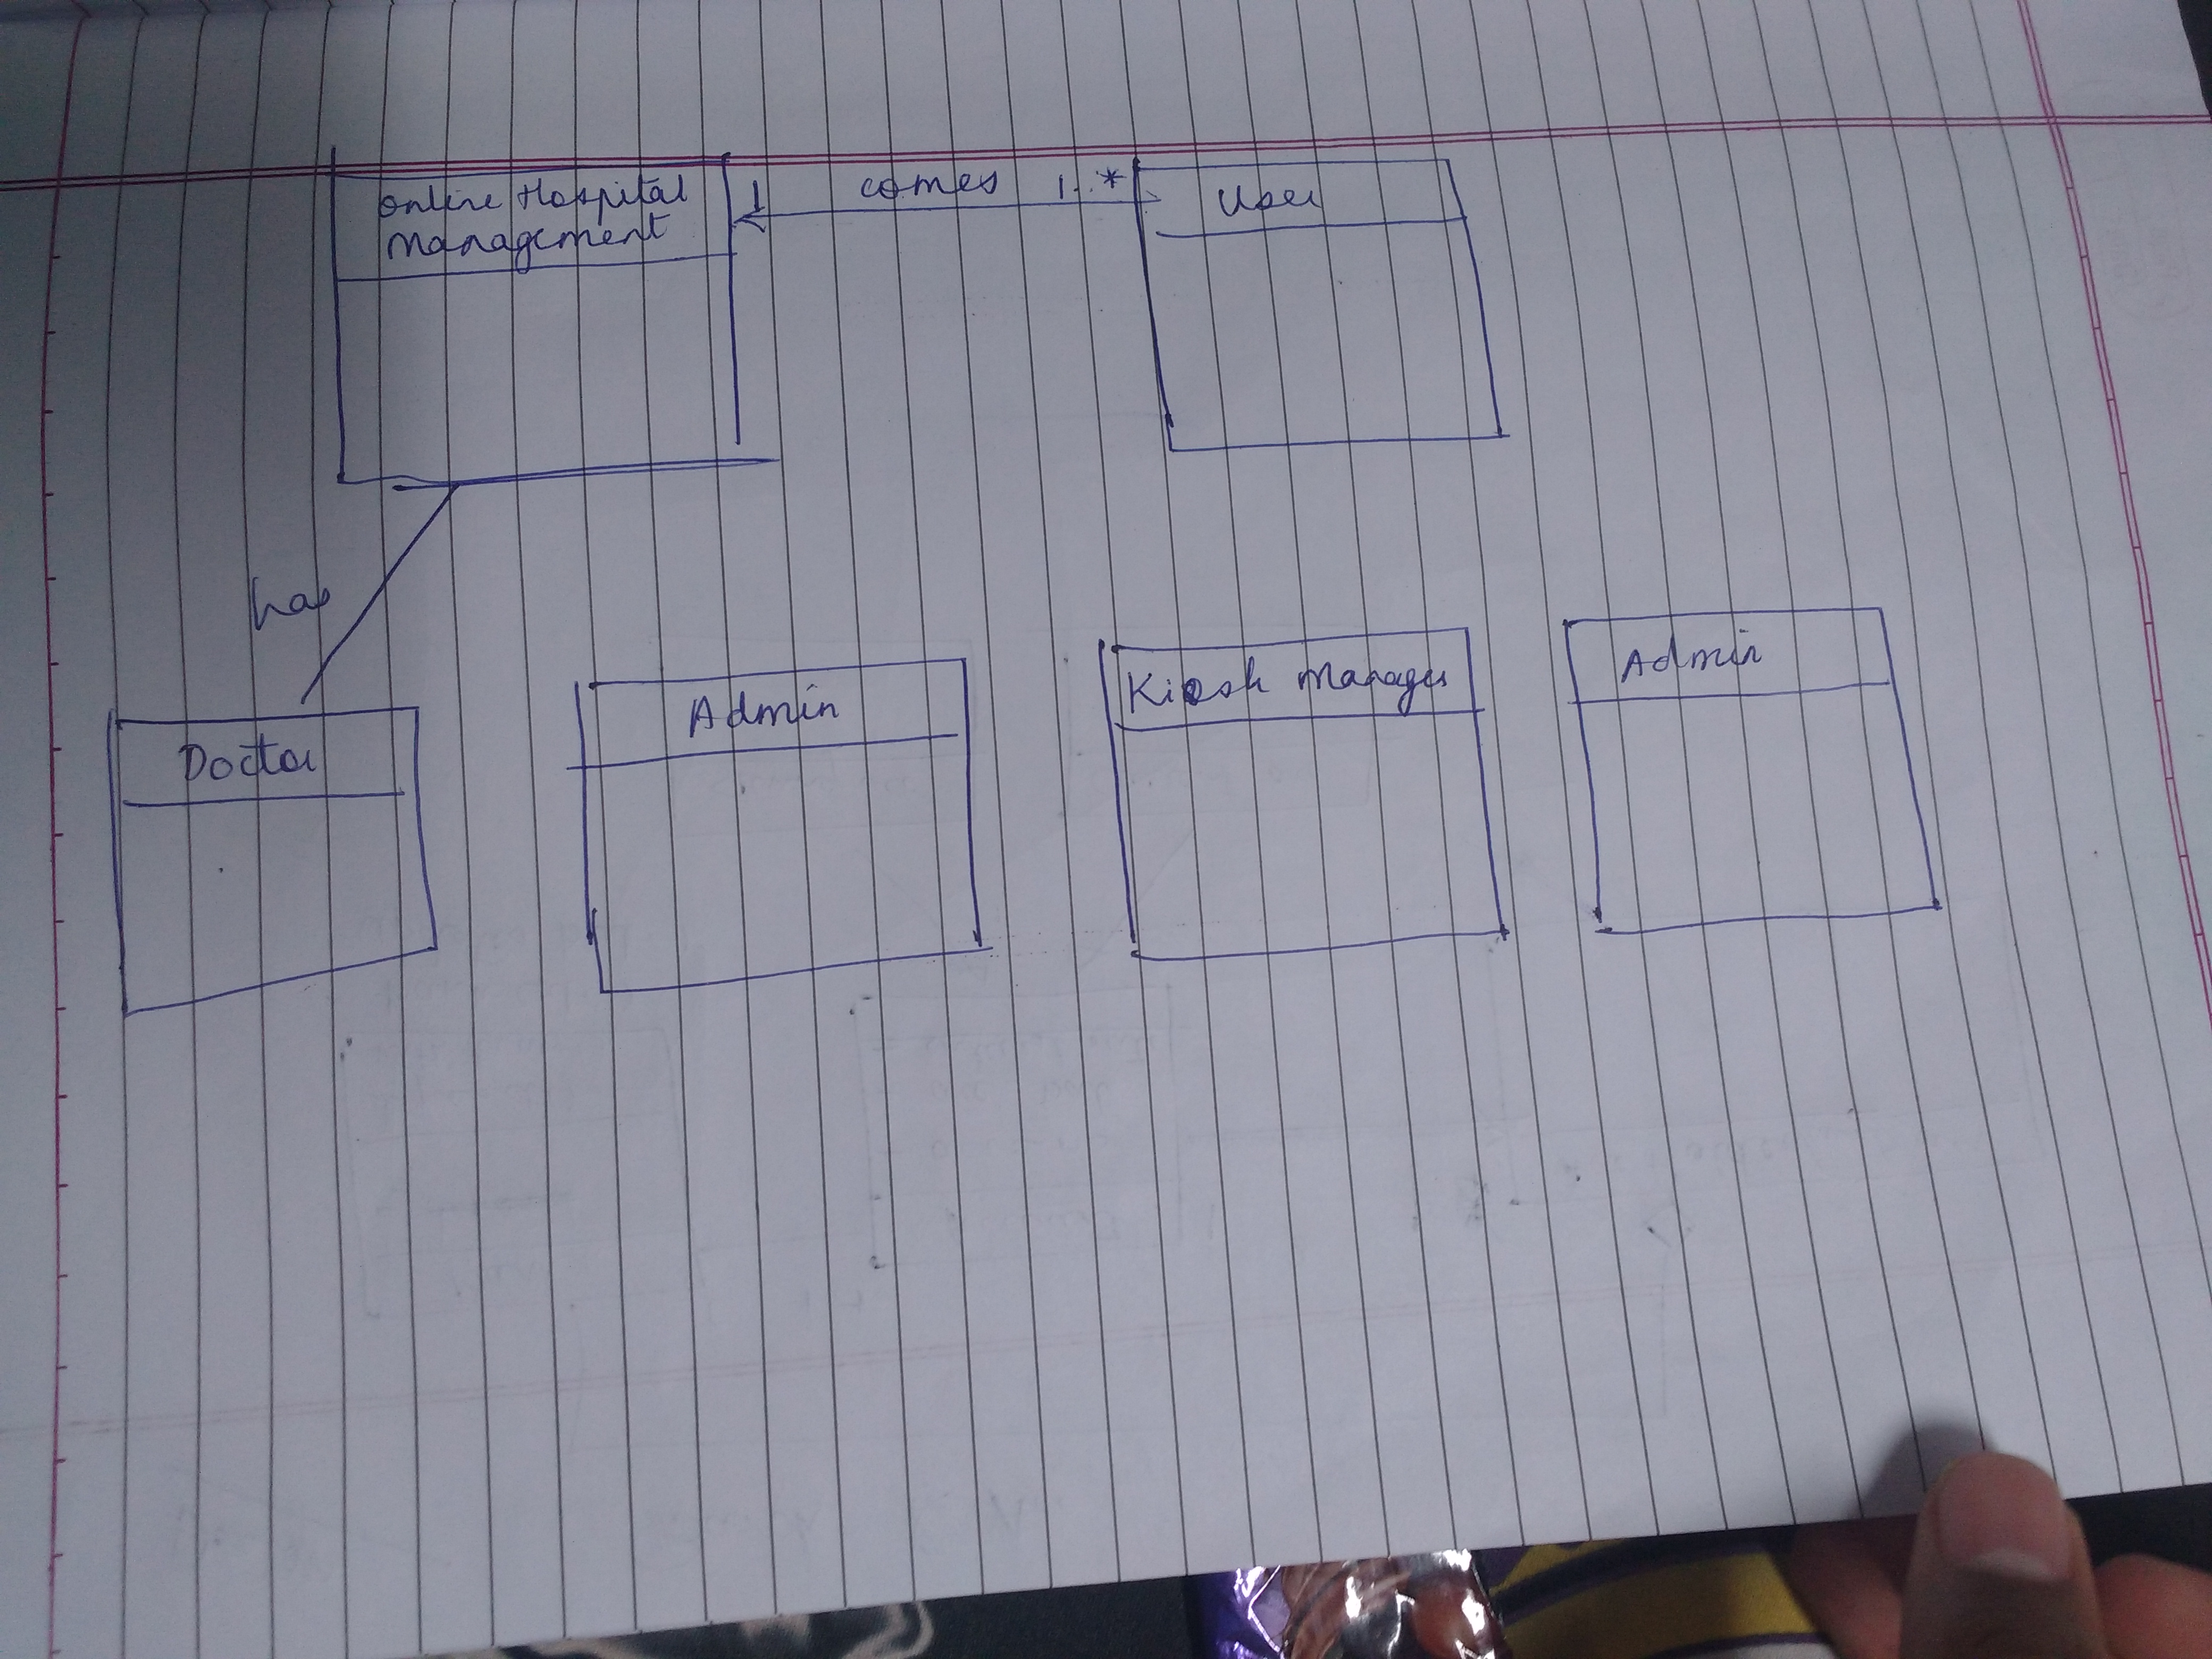 Online Hospital
Management
1 comes 1..*
User
has
Doctor
Admin
Kiosk Manager
Admin